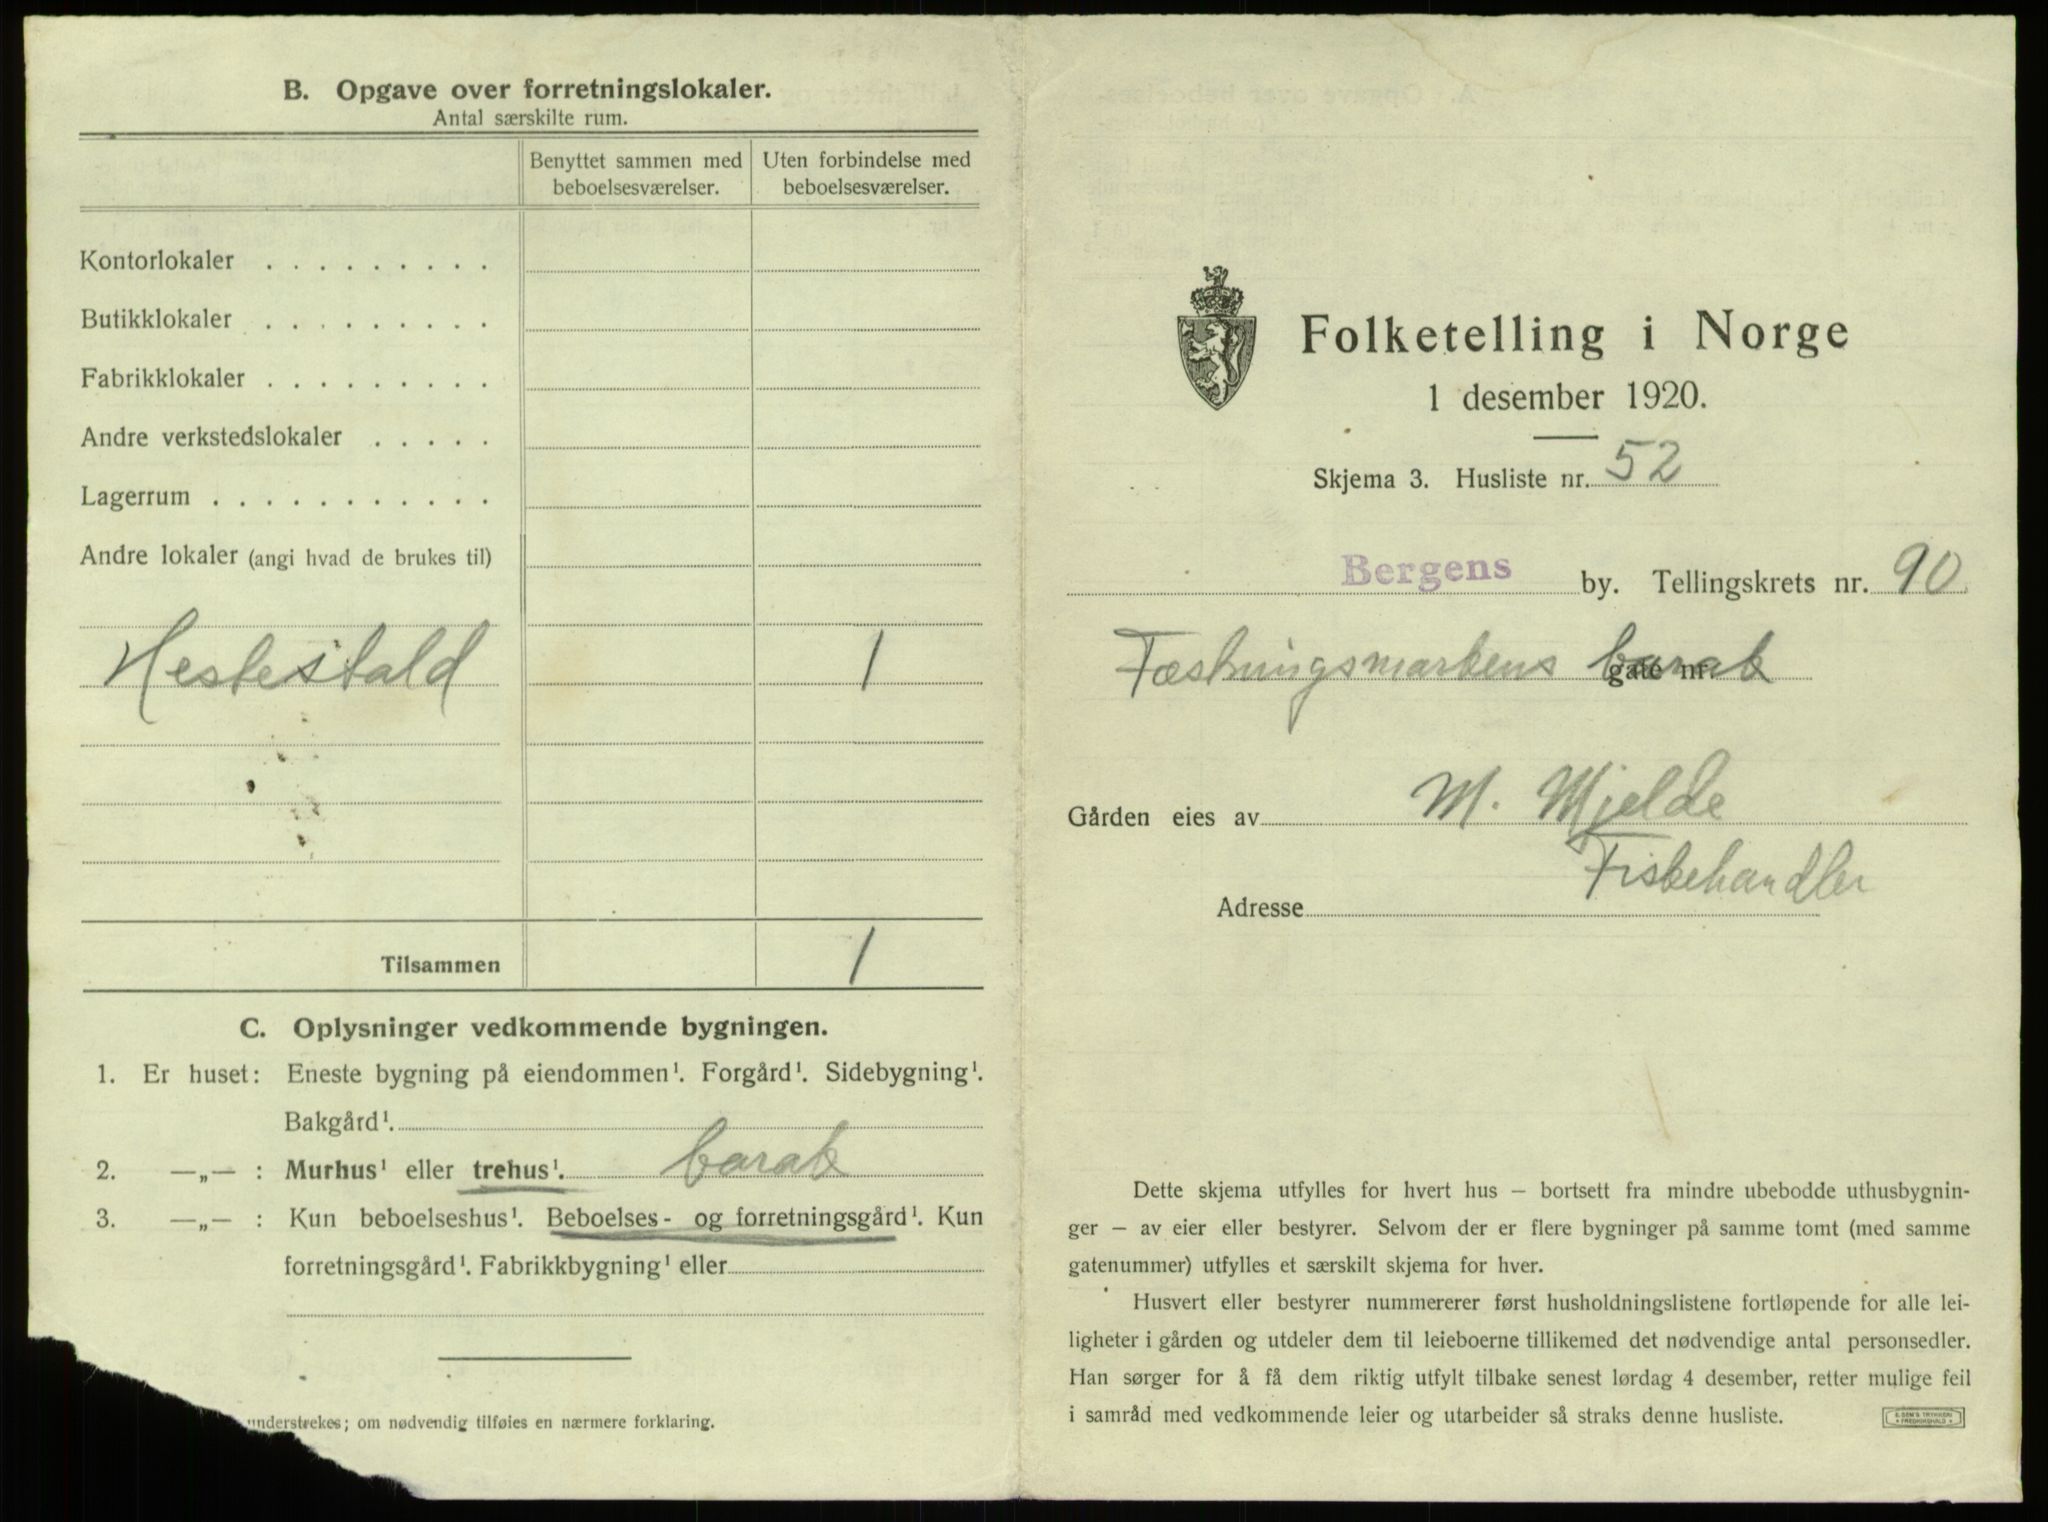 B. Opgave over forretningslokaler.
Antal særskilte rum.
Benyttet sammen med beboelsesværelser.
Uten forbindelse med beboelsesværelser.
Kontorlokaler . . . . . . . . .
Butikklokaler . . . . . . . . .
Fabrikklokaler . . . . . . . . .
Andre verkstedslokaler . . . . .
Lagerrum . . . . . . . . . . .
Andre lokaler (angi hvad de brukes til)
Hestestald 1
Tilsammen 1
C. Oplysninger vedkommende bygningen.
1. Er huset: Eneste bygning på eiendommen¹. Forgård¹. Sidebygning¹.
Bakgård¹.
2. —„— : Murhus¹ eller trehus¹. barak
3. —„— : Kun beboelseshus¹. Beboelses- og forretningsgård¹. Kun
forretningsgård¹. Fabrikkbygning¹ eller
understrekes; om nødvendig tilføies en nærmere forklaring.
Folketelling i Norge
1 desember 1920.
Skjema 3. Husliste nr. 52
Bergens by. Tellingskrets nr. 90
Fæstningsmarkens barak gate nr.
Gården eies av M. Mjelde
Fiskehandler
Adresse
Dette skjema utfylles for hvert hus — bortsett fra mindre ubebodde uthusbygnin-
ger — av eier eller bestyrer. Selvom der er flere bygninger på samme tomt (med samme
gatenummer) utfylles et særskilt skjema for hver.
Husvert eller bestyrer nummererer først husholdningslistene fortløpende for alle lei-
ligheter i gården og utdeler dem til leieboerne tillikemed det nødvendige antal personsedler.
Han sørger for å få dem riktig utfylt tilbake senest lørdag 4 desember, retter mulige feil
i samråd med vedkommende leier og utarbeider så straks denne husliste.